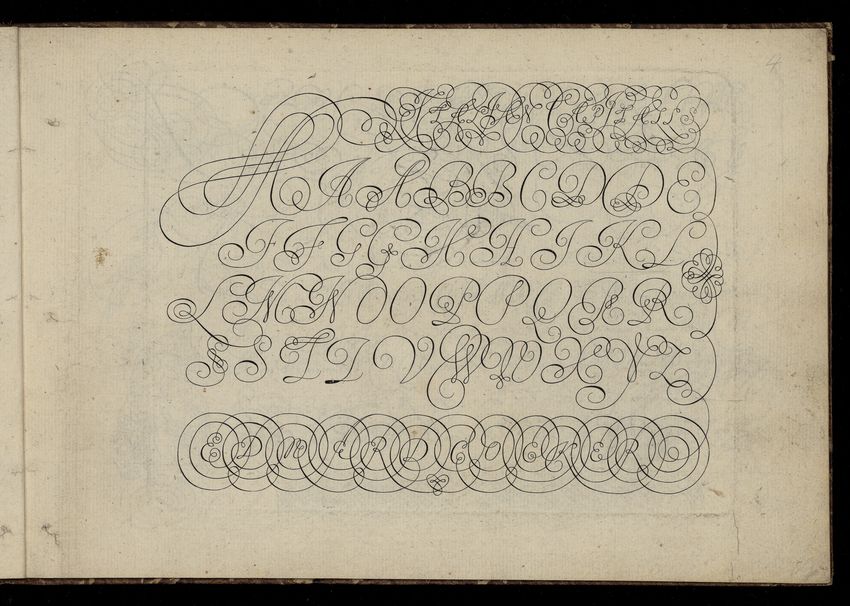 4
ITALIAN CAPITALS
A A A B B C D D E
F F G G H H I K L
L M N O O P P Q R R
S S T T V W W X Y Z
EDWARD COCKER